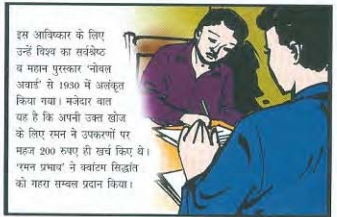 इस आविष्कार के लिए
उन्हें विश्व का सर्वश्रेष्ठ
व महान पुरस्कार ‘नोबल
अवार्ड’ से 1930 में अलंकृत
किया गया। मजेदार बात
यह है कि अपनी उक्त खोज
के लिए रमन ने उपकरणों पर
महज 200 रुपए ही खर्च किए थे।
‘रमन प्रभाव’ ने क्वांटम सिद्धांत
को गहरा सम्बल प्रदान किया।